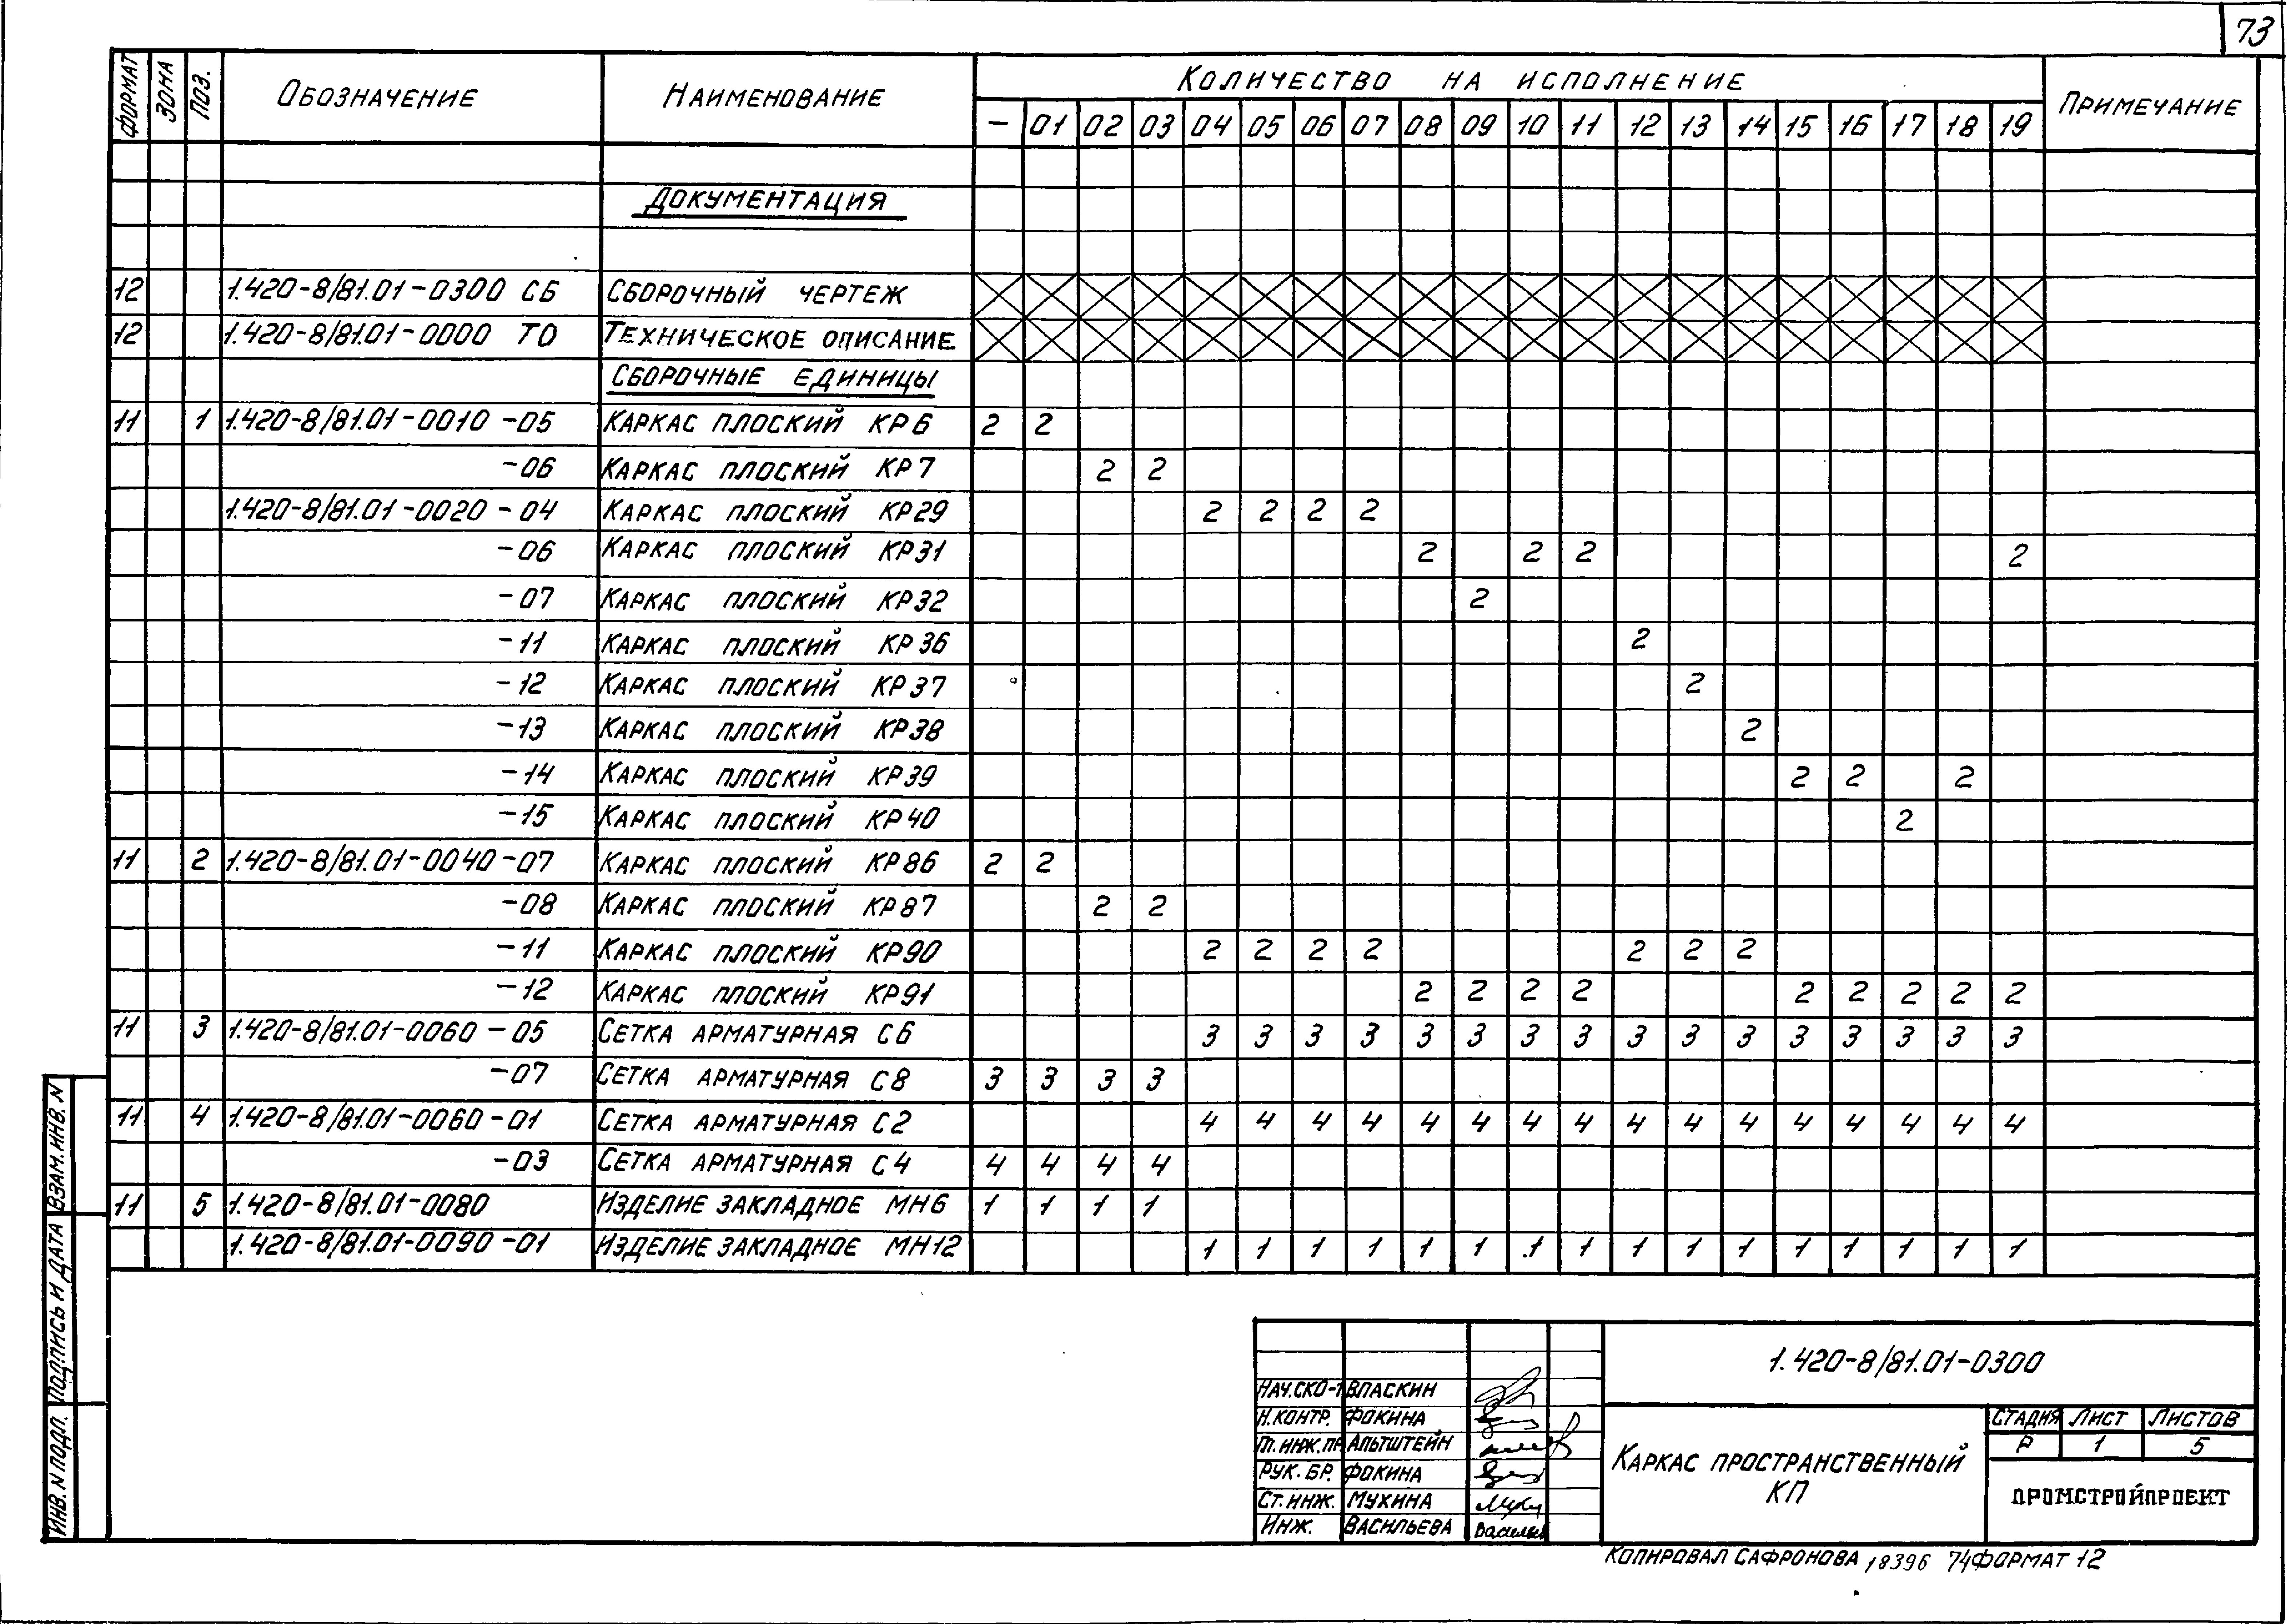 73
ФОРМАТ ЗОНА ПОЗ. ОБОЗНАЧЕНИЕ НАИМЕНОВАНИЕ КОЛИЧЕСТВО НА ИСПОЛНЕНИЕ ПРИМЕЧАНИЕ
– 01 02 03 04 05 06 07 08 09 10 11 12 13 14 15 16 17 18 19
ДОКУМЕНТАЦИЯ
12 1.420-8/81.01-0300 СБ СБОРОЧНЫЙ ЧЕРТЕЖ
12 1.420-8/81.01-0000 ТО ТЕХНИЧЕСКОЕ ОПИСАНИЕ
СБОРОЧНЫЕ ЕДИНИЦЫ
11 1 1.420-8/81.01-0010 -05 КАРКАС ПЛОСКИЙ КР6 2 2
-06 КАРКАС ПЛОСКИЙ КР7 2 2
1.420-8/81.01-0020 -04 КАРКАС ПЛОСКИЙ КР29 2 2 2 2
-06 КАРКАС ПЛОСКИЙ КР31 2 2 2 2
-07 КАРКАС ПЛОСКИЙ КР32 2
-11 КАРКАС ПЛОСКИЙ КР36 2
-12 КАРКАС ПЛОСКИЙ КР37 2
-13 КАРКАС ПЛОСКИЙ КР38 2
-14 КАРКАС ПЛОСКИЙ КР39 2 2 2
-15 КАРКАС ПЛОСКИЙ КР40 2
11 2 1.420-8/81.01-0040 -07 КАРКАС ПЛОСКИЙ КР86 2 2
-08 КАРКАС ПЛОСКИЙ КР87 2 2
-11 КАРКАС ПЛОСКИЙ КР90 2 2 2 2 2 2 2
-12 КАРКАС ПЛОСКИЙ КР91 2 2 2 2 2 2 2 2 2
11 3 1.420-8/81.01-0060 -05 СЕТКА АРМАТУРНАЯ С6 3 3 3 3 3 3 3 3 3 3 3 3 3 3 3 3
-07 СЕТКА АРМАТУРНАЯ С8 3 3 3 3
11 4 1.420-8/81.01-0060 -01 СЕТКА АРМАТУРНАЯ С2 4 4 4 4 4 4 4 4 4 4 4 4 4 4 4 4
-03 СЕТКА АРМАТУРНАЯ С4 4 4 4 4
11 5 1.420-8/81.01-0080 ИЗДЕЛИЕ ЗАКЛАДНОЕ МН6 1 1 1 1
1.420-8/81.01-0090 -01 ИЗДЕЛИЕ ЗАКЛАДНОЕ МН12 1 1 1 1 1 1 1 1 1 1 1 1 1 1 1 1
ВЗАМ. ИНВ. N
ПОДПИСЬ И ДАТА
ИНВ. N ПОДЛ.
1.420-8/81.01-0300
НАЧ.СКО-1 ВЛАСКИН
Н.КОНТР. ФОКИНА
ГЛ.ИНЖ.ПР АЛЬТШТЕЙН
РУК. БР. ФОКИНА
СТ. ИНЖ. МУХИНА
ИНЖ. ВАСИЛЬЕВА
КАРКАС ПРОСТРАНСТВЕННЫЙ
КП
СТАДИЯ ЛИСТ ЛИСТОВ
Р 1 5
ПРОМСТРОЙПРОЕКТ
КОПИРОВАЛ САФРОНОВА 18396 74 ФОРМАТ 12